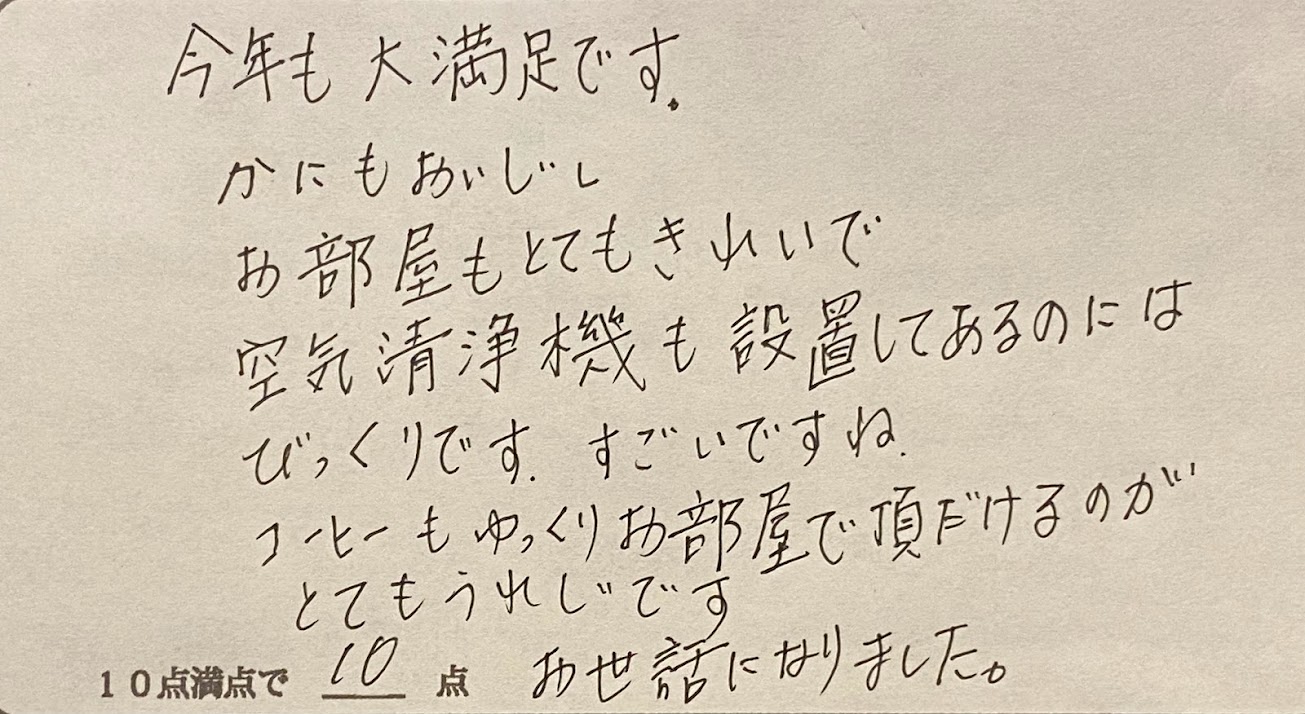 今年も大満足です.
かにもおいしし
お部屋もとてもきれいで
空気清浄機も設置してあるのには
びっくりです. すごいですね.
コーヒーもゆっくりお部屋で頂だけるのが
とてもうれしいです
10点満点で 10 点 お世話になりました。